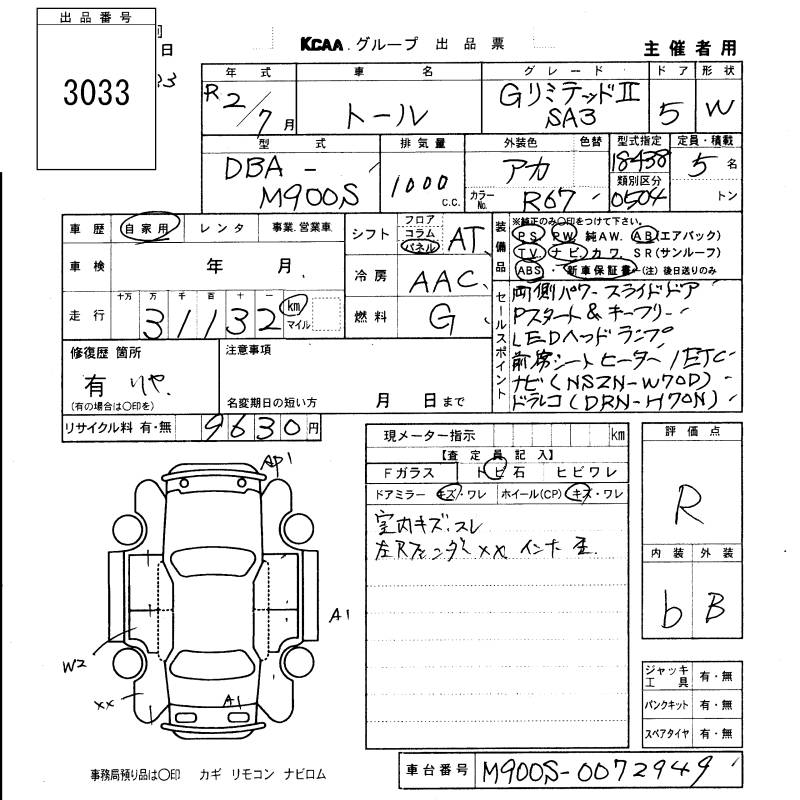 出品番号
3033
日
KCAA グループ 出品票
主催者用
年式 車名 グレード ドア 形状
R2/7月 トール GリミテッドⅡ SA3 5 W
型式 排気量 外装色 色替 型式指定 定員・積載
DBA-M900S 1000 C.C. アカ 18438 5名
カラーNo. R67 類別区分 0504 トン
車歴 自家用 レンタ 事業.営業車
車検 年 月
走行 十万 万 千 百 十 一
31132 km マイル
シフト フロア コラム パネル AT
冷房 AAC
燃料 G
装備品 ※純正のみ〇印をつけて下さい。
PS PW 純AW. AB(エアバック)
TV. ナビ. カワ. SR(サンルーフ)
ABS・新車保証書←(注) 後日送りのみ
セールスポイント
両側パワースライドドア
Pスタート&キーフリー
LEDヘッドランプ
前席シートヒーター/ETC
ナビ(NSZN-W70D)
ドラレコ(DRN-H70N)
修復歴 箇所
有
(有の場合は〇印を)
注意事項
名変期日の短い方 月 日まで
リサイクル料 有・無 9630円
現メーター指示 km
【査定員記入】
Fガラス トビ石 ヒビワレ
ドアミラー キズ・ワレ ホイール(CP) キズ・ワレ
室内キズ.スレ
左Rフェンダ XX インナ歪.
評価点
R
内装 外装
b B
AP1
A1
W2
XX
A1
ジャッキ工具 有・無
パンクキット 有・無
スペアタイヤ 有・無
事務局預り品は〇印 カギ リモコン ナビロム
車台番号 M900S-0072949